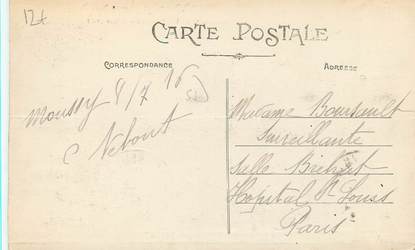 12+
CARTE POSTALE
CORRESPONDANCE
ADRESSE
Moussy 8/7 16
C Nebout
Madame Boursault
Surveillante
Salle Bichat
Hopital St Louis
Paris